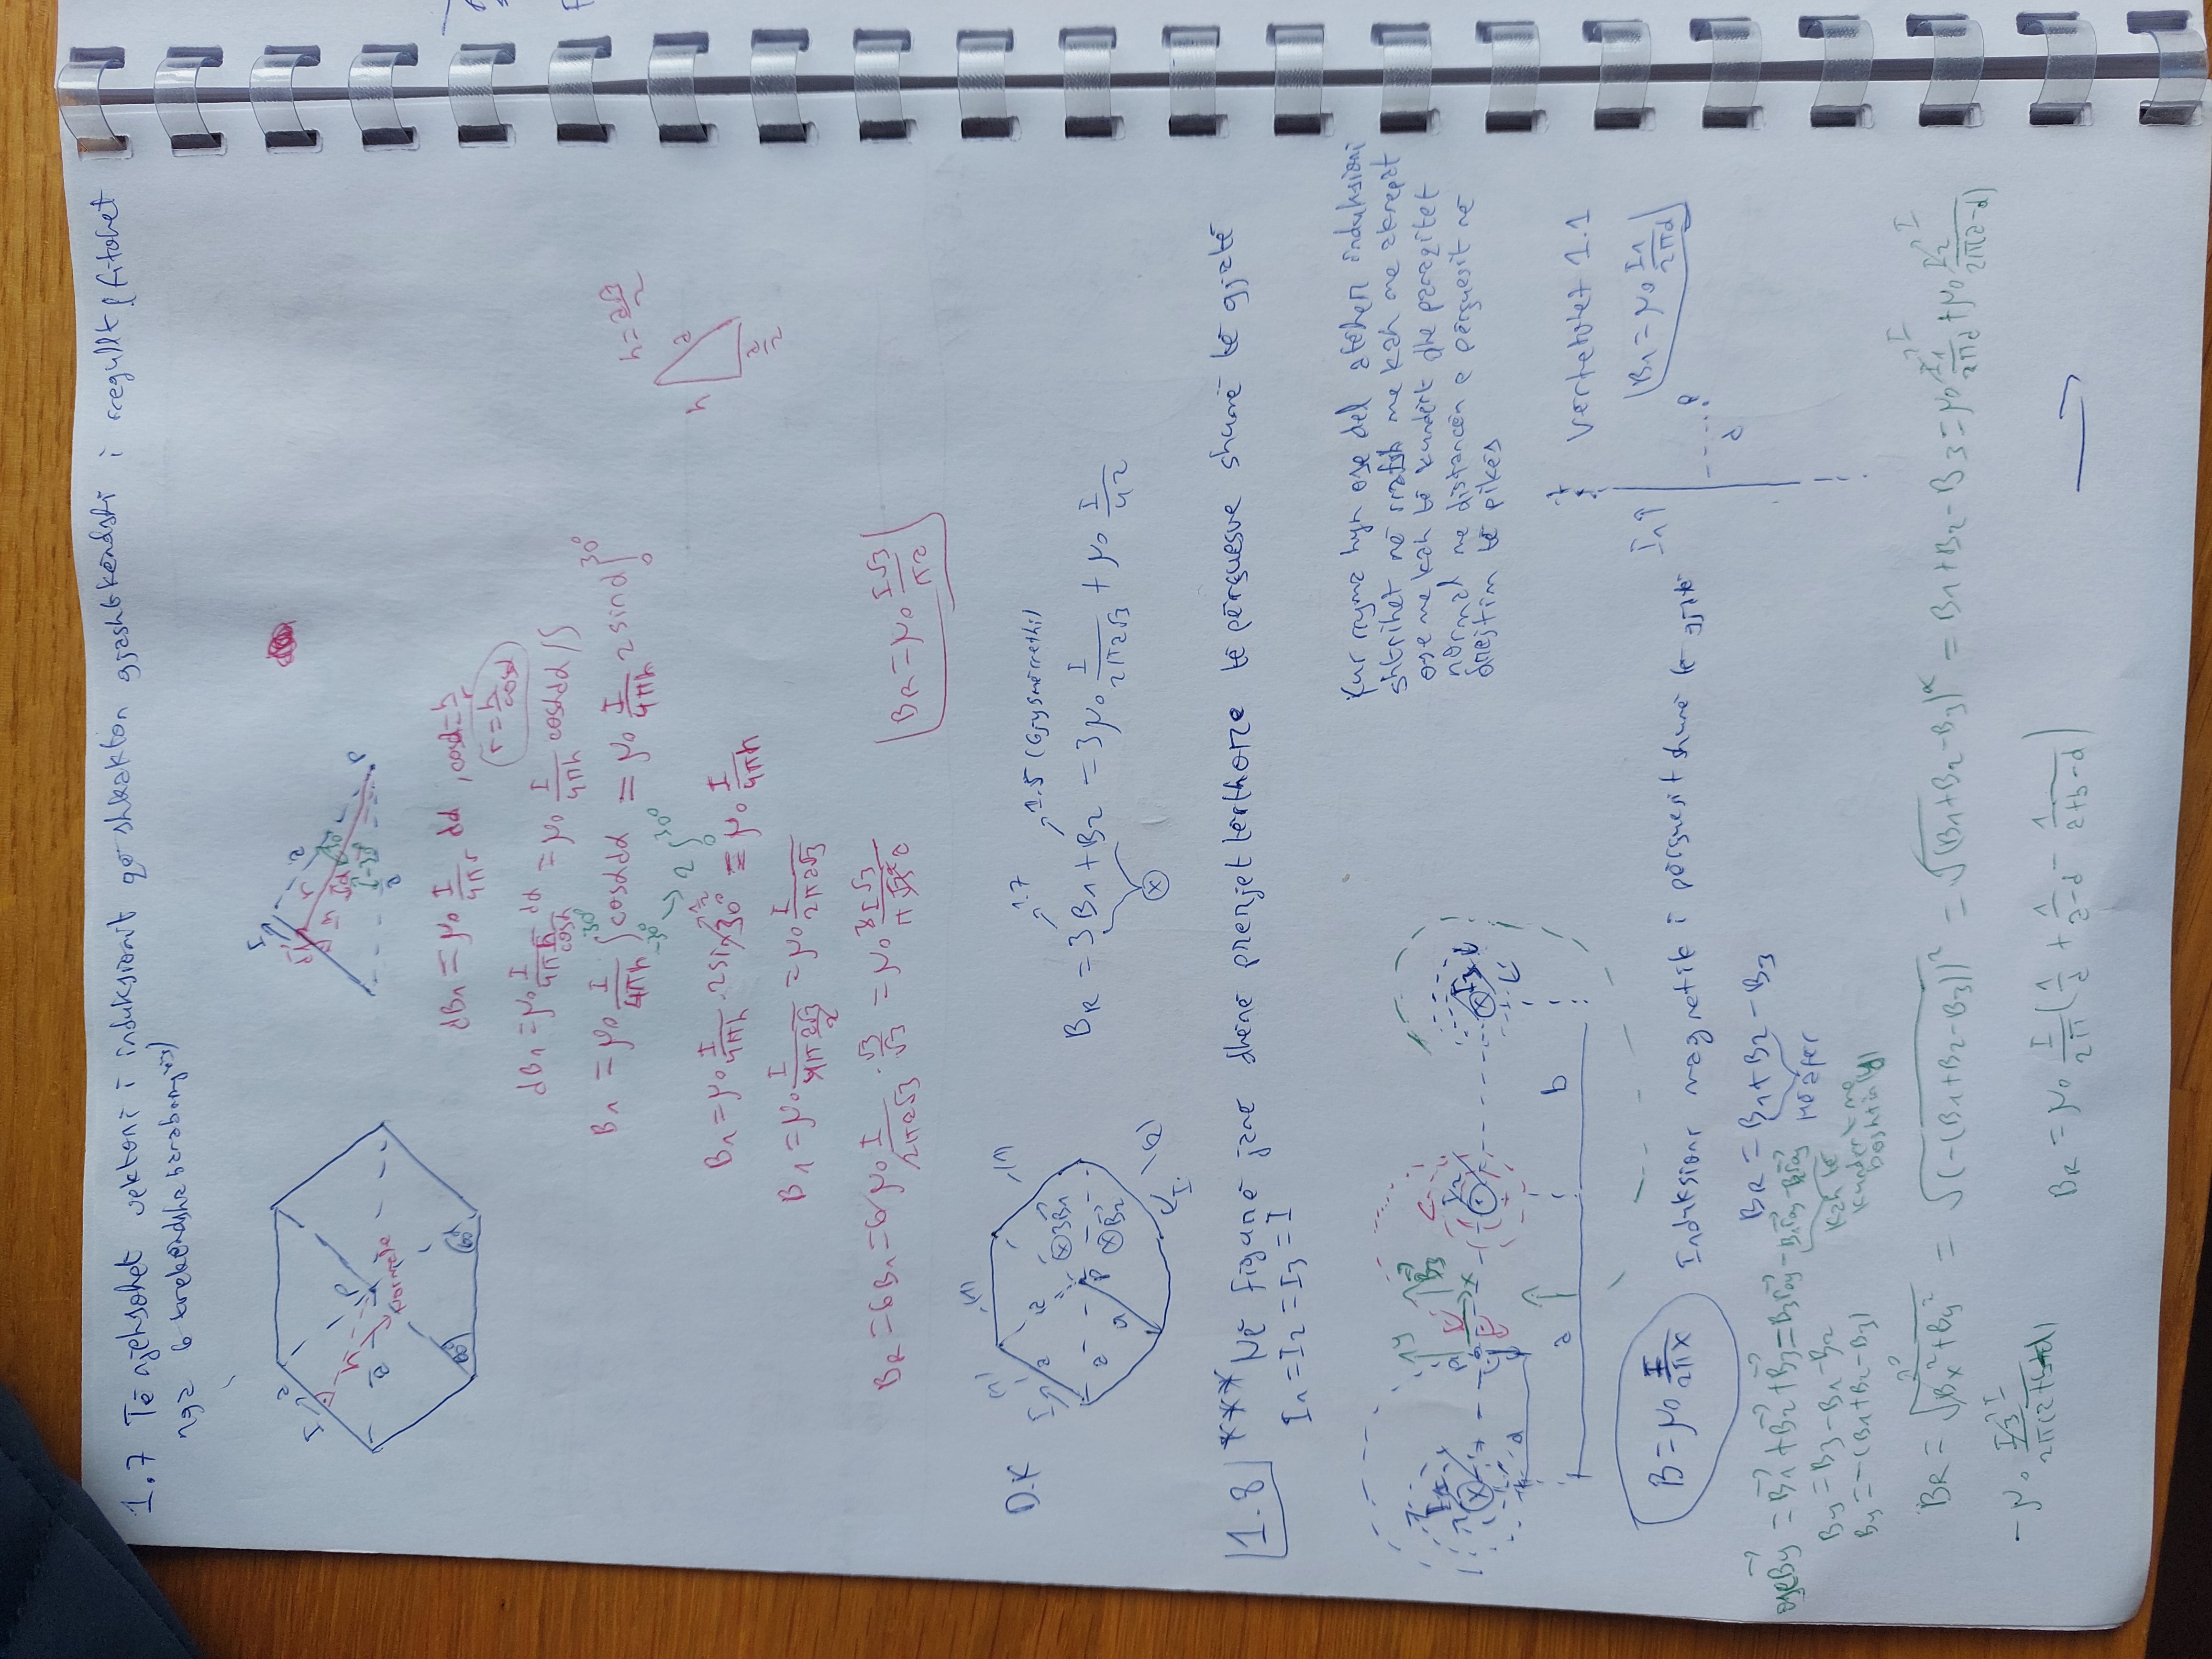 1.7 Të njehsohet vektori i induksionit që shkakton gjashtkëndshi i rregullt (fitohet
nga 6 trekëndsha barabrinjës)
I a
h
a
P
Normale
60°
60°
I
r
a
h
α
30°
-30°
P
a
dB1 = μ0 I/4πr dα , cosα = h/r
r = h/cosα
dB1 = μ0 I/(4π h/cosα) dα = μ0 I/4πh cosα dα /∫
B1 = μ0 I/4πh ∫ cosα dα = μ0 I/4πh 2 sinα ∫
30°
-30°
30°
0
→ 2 ∫
30°
0
h = a√3/2
h
a
a/2
B1 = μ0 I/4πh · 2 sin 30° = μ0 I/4πh
1/2
B1 = μ0 I/(4π a√3/2) = μ0 I/2πa√3
BR = 6B1 = 6 μ0 I/2πa√3 · √3/√3 = μ0 3I√3/π√3²a
BR = μ0 I√3/πa
D.K
(1) (1) (1)
I a a
⊗3B1
a P
⊗B2
a
I (2)
1.7 1.5 (Gjysmërrethi)
BR = 3B1 + B2 = 3μ0 I/2πa√3 + μ0 I/4a
⊗
1.8 *** Në figurë janë dhënë prerjet tërthore të përçuesve shumë të gjatë
I1 = I2 = I3 = I
Kur rryma hyn ose del atëherë induksioni
shtrihet në rrafsh me kah me akrepat
ose me kah të kundërt dhe paraqitet
normal me distancën e përçuesit në
drejtim të pikës
I1
y
P
B3
x
I2
I3
d
a
b
Vërtetohet 1.1
I1↑
B1 = μ0 I1/2πd
P
d
B = μ0 I/2πx
Induksioni magnetik i përçuesit shumë të gjatë
BR = B1 + B2 - B3
Më afër
ose By = B1 + B2 + B3 = B3 roy - B1 roy - B2 roy
By = B3 - B1 - B2
By = -(B1 + B2 - B3)
Kah të
kundërt me
boshtin (y)
BR = √Bx² + By² = √(-(B1+B2-B3))² = √(B1+B2-B3)² = B1+B2-B3 = μ0 I1/2πd + μ0 I2/2π(a-d)
- μ0 I3/2π(a+b-d)
BR = μ0 I/2π (1/d + 1/a-d - 1/a+b-d)